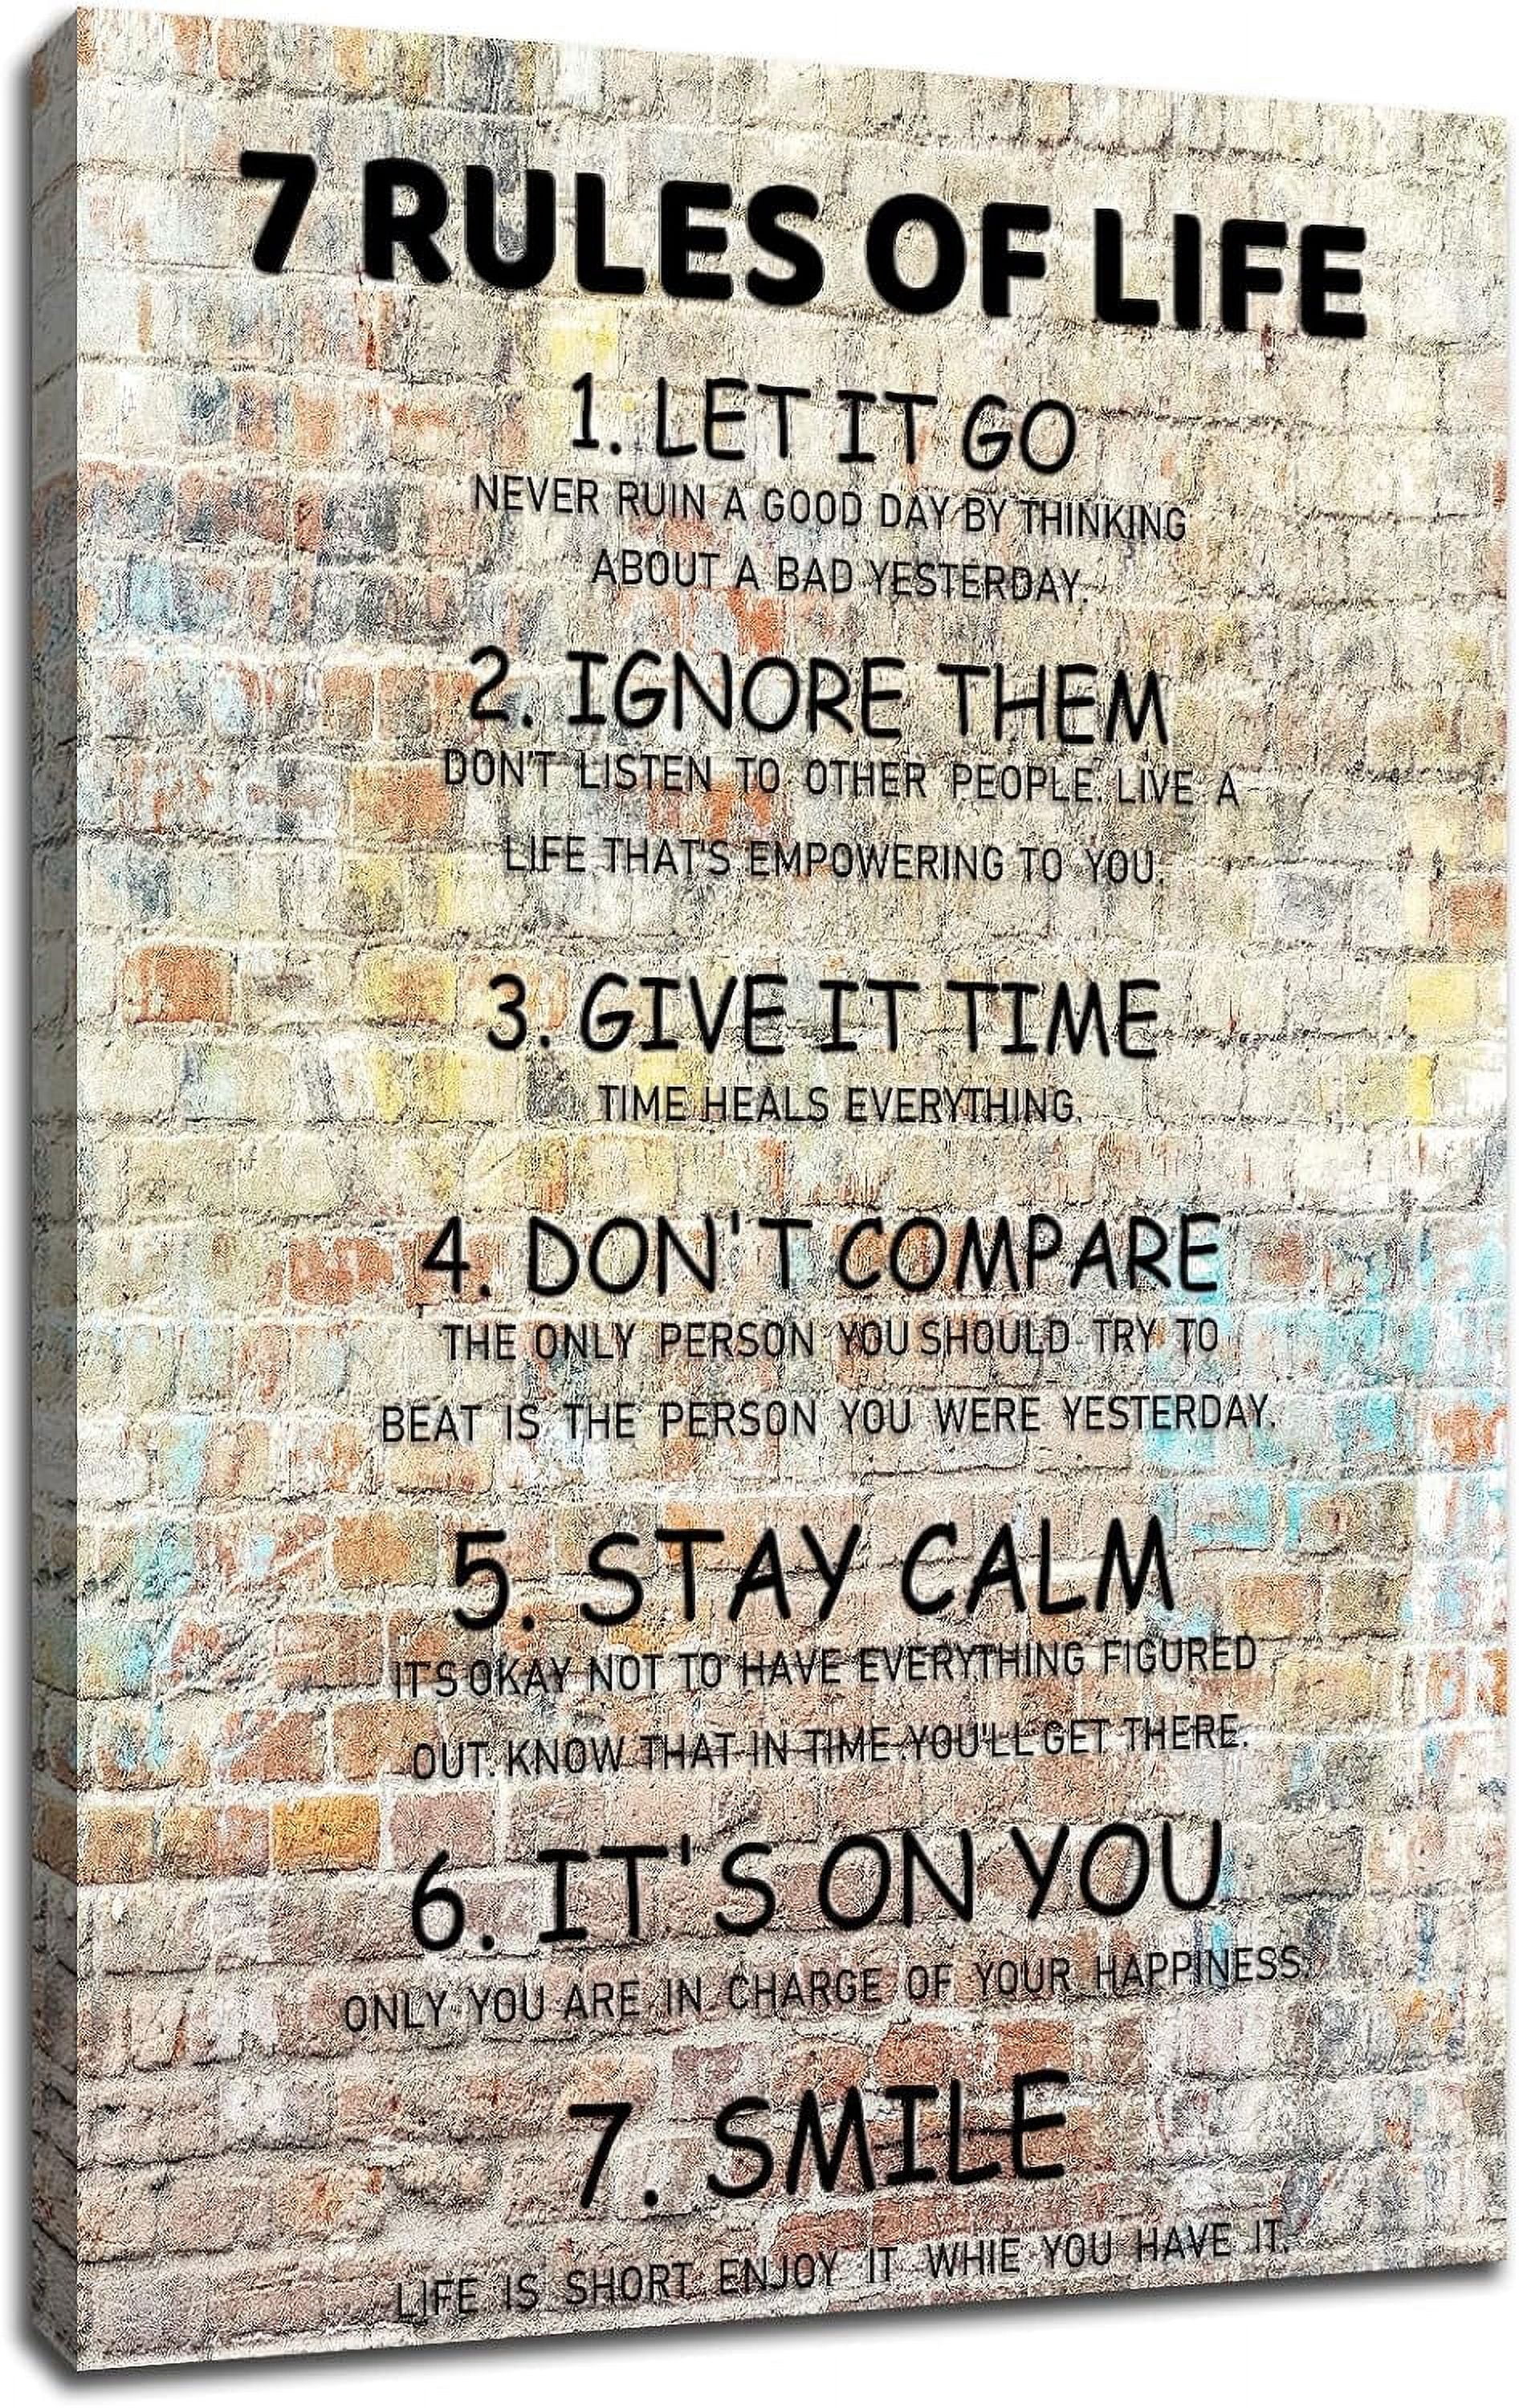 7 RULES OF LIFE
1. LET IT GO
NEVER RUIN A GOOD DAY BY THINKING
ABOUT A BAD YESTERDAY.
2. IGNORE THEM
DON'T LISTEN TO OTHER PEOPLE. LIVE A
LIFE THAT'S EMPOWERING TO YOU.
3. GIVE IT TIME
TIME HEALS EVERYTHING.
4. DON'T COMPARE
THE ONLY PERSON YOU SHOULD TRY TO
BEAT IS THE PERSON YOU WERE YESTERDAY.
5. STAY CALM
IT'S OKAY NOT TO HAVE EVERYTHING FIGURED
OUT. KNOW THAT IN TIME YOU'LL GET THERE.
6. IT'S ON YOU
ONLY YOU ARE IN CHARGE OF YOUR HAPPINESS.
7. SMILE
LIFE IS SHORT ENJOY IT WHIE YOU HAVE IT.